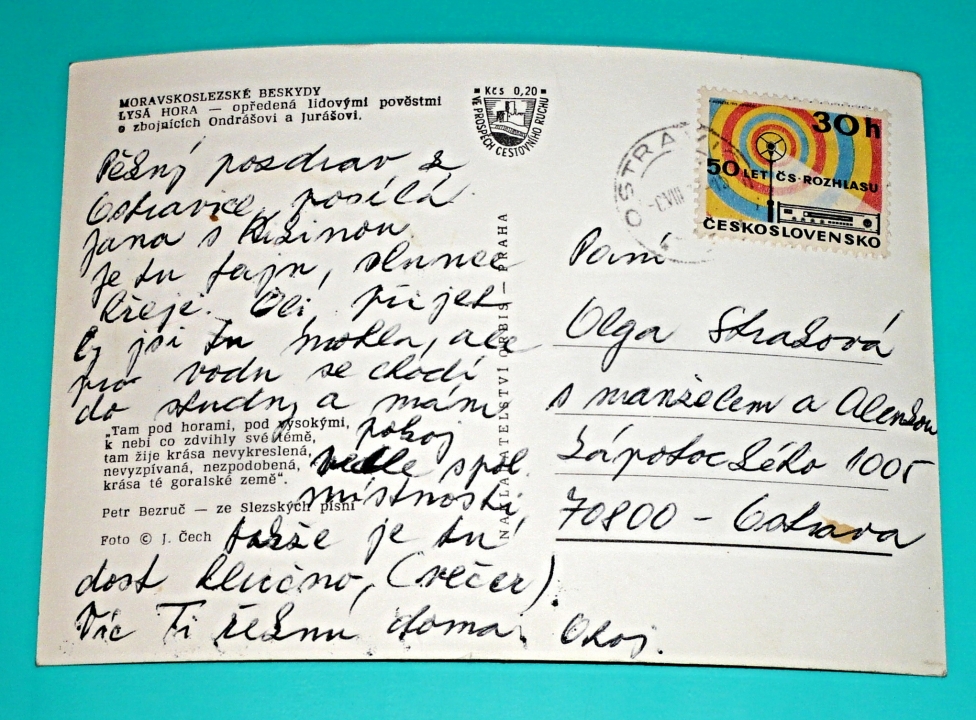 MORAVSKOSLEZSKÉ BESKYDY
LYSÁ HORA — opředená lidovými pověstmi
o zbojnících Ondrášovi a Jurášovi.
Kčs 0,20
VE PROSPĚCH CESTOVNÍHO RUCHU
OSTRAVA
30h
50 LET ČS. ROZHLASU
ČESKOSLOVENSKO
Pěkný pozdrav z
Ostravice posílá
Jana s
Je tu fajn, slunce
hřeje. Oli, přijet
by jsi tu mohla, ale
pro vodu se chodí
do studny a mám
pokoj
vedle spol.
místnosti
takže je tu
dost hlučno, (večer).
Víc Ti řeknu doma. Ahoj.
„Tam pod horami, pod vysokými,
k nebi co zdvihly své témě,
tam žije krása nevykreslená,
nevyzpívaná, nezpodobená,
krása té goralské země“.
Petr Bezruč — ze Slezských písní
Foto © J. Čech
NAKLADATELSTVÍ ORBIS — PRAHA
Paní
Olga
s manželem a Alenkou
Zápotockého 1005
70800 - Ostrava